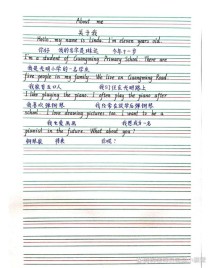 About me
关于我
Hello, my name is Linda. I'm eleven years old.
你好 我的名字是 今年十一岁
I'm a student of Guangming Primary School. There are
我是光明小学的一名学生
five people in my family. We live on Guangming Road.
我家有五口人 我们住在光明路上
I like playing the piano. I often play the piano after
我喜欢弹钢琴 我经常在放学后弹钢琴
school. I love drawing pictures, too. I want to be a
我也爱画画 我想成为一名
pianist in the future. What about you?
钢琴家 将来 你呢?